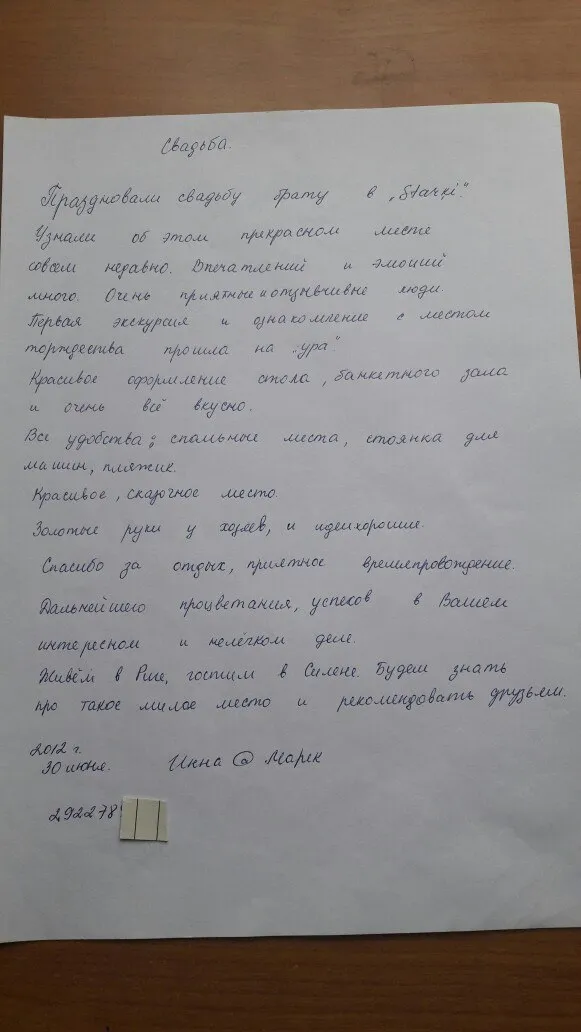 Свадьба.
Праздновали свадьбу брату в „Starķi".
Узнали об этом прекрасном месте
совсем недавно. Впечатлений и эмоций
много. Очень приятные и отзывчивые люди.
Первая экскурсия и ознакомление с местом
торждества прошла на „ура"
Красивое оформление стола, банкетного зала
и очень всё вкусно.
Все удобства: спальные места, стоянка для
машин, пляжик.
Красивое, сказочное место.
Золотые руки у хозяев, и идеи хорошие.
Спасибо за отдых, приятное времяпровождение.
Дальнейшего процветания, успехов в Вашем
интересном и нелёгком деле.
Живём в Риге, гостим в Силене. Будем знать
про такое милое место и рекомендовать друзьям.
2012 г.
30 июня. Инна @ Марек
292278